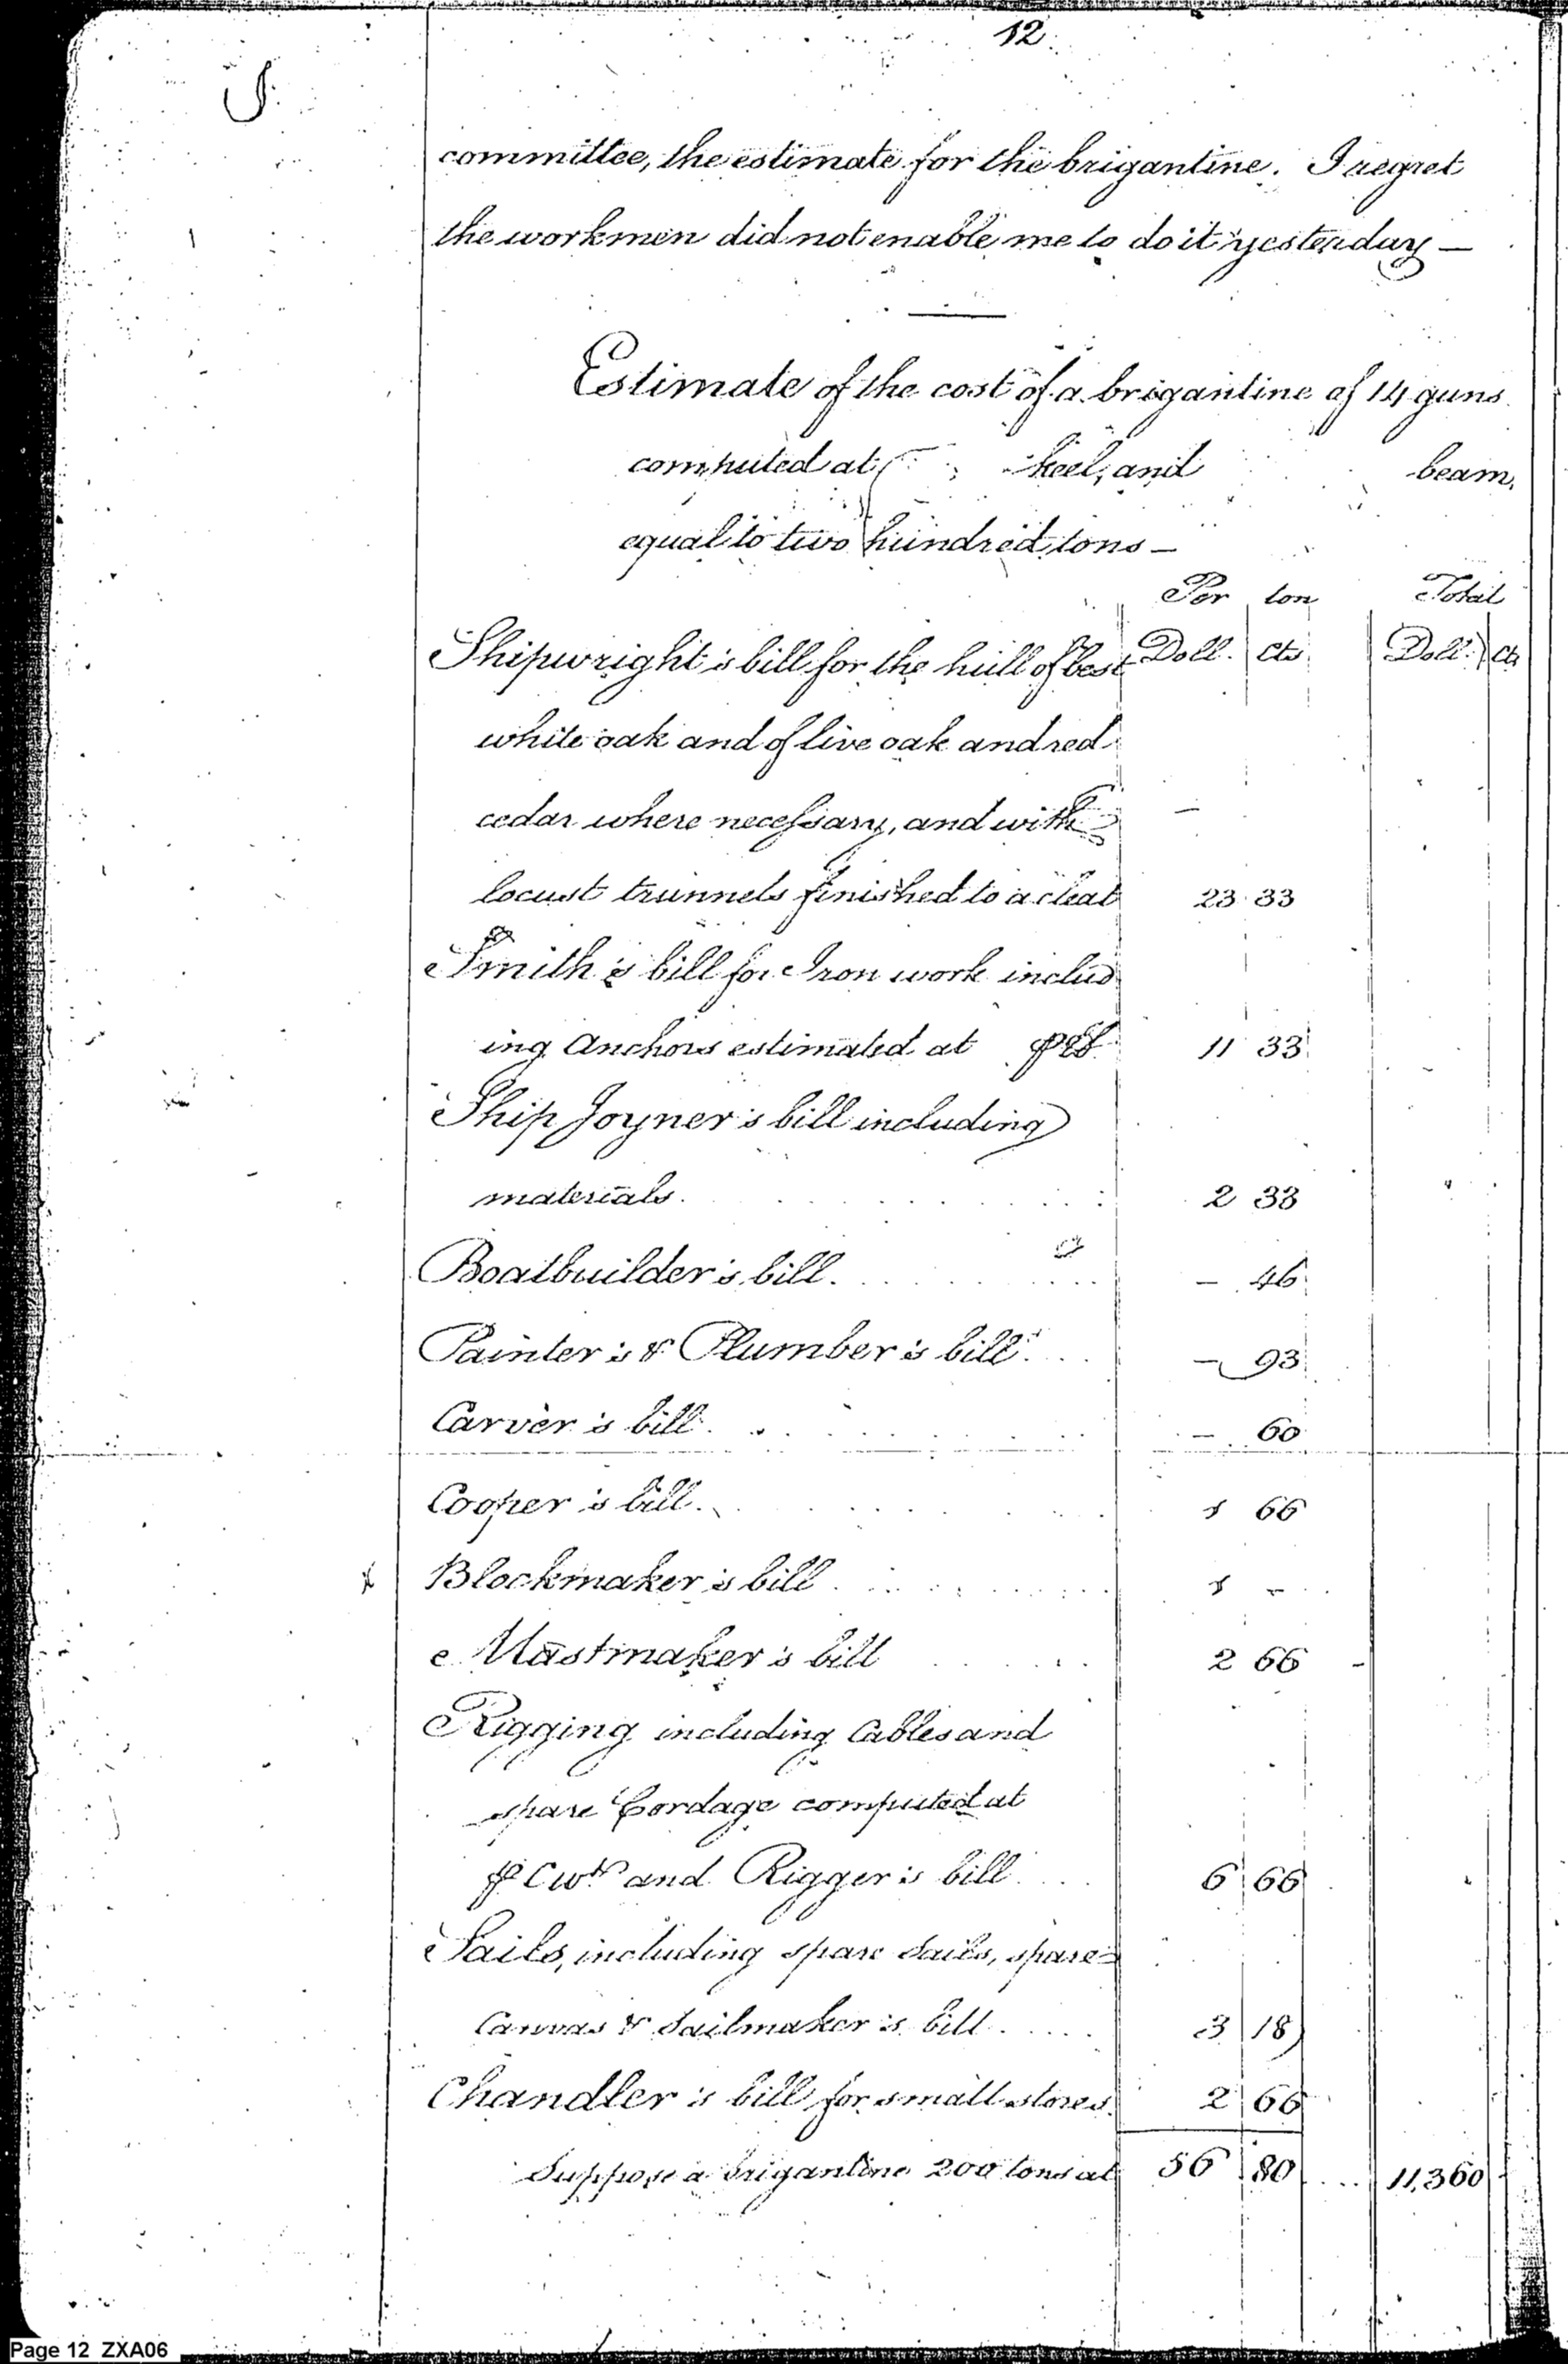 12.
committee, the estimate for the brigantine. I regret
the workmen did not enable me to do it yesterday —
Estimate of the cost of a brigantine of 14 guns
computed at keel, and beam,
equal to two hundred tons —
Per ton Total
Shipwright's bill for the hull of best Doll. Cts Doll. Cts
white oak and of live oak and red
cedar where necessary, and with —
locust trunnels finished to a cleat 23 33
Smith's bill for Iron work includ
ing Anchors estimated at 11 33
Ship Joyner's bill including
materials. 2 33
Boatbuilder's bill. — 46
Painter's & Plumber's bill. — 93
Carver's bill. — 60
Cooper's bill. 1 66
Blockmaker's bill 1 —
Mastmaker's bill 2 66
Rigging including Cables and
spare Cordage computed at
⅌ Cwt. and Rigger's bill 6 66
Sails, including spare Sails, spare
Canvas & Sailmaker's bill 3 18
Chandler's bill for small stores. 2 66
Suppose a brigantine 200 tons at 56 80 11,360
Page 12 ZXA06